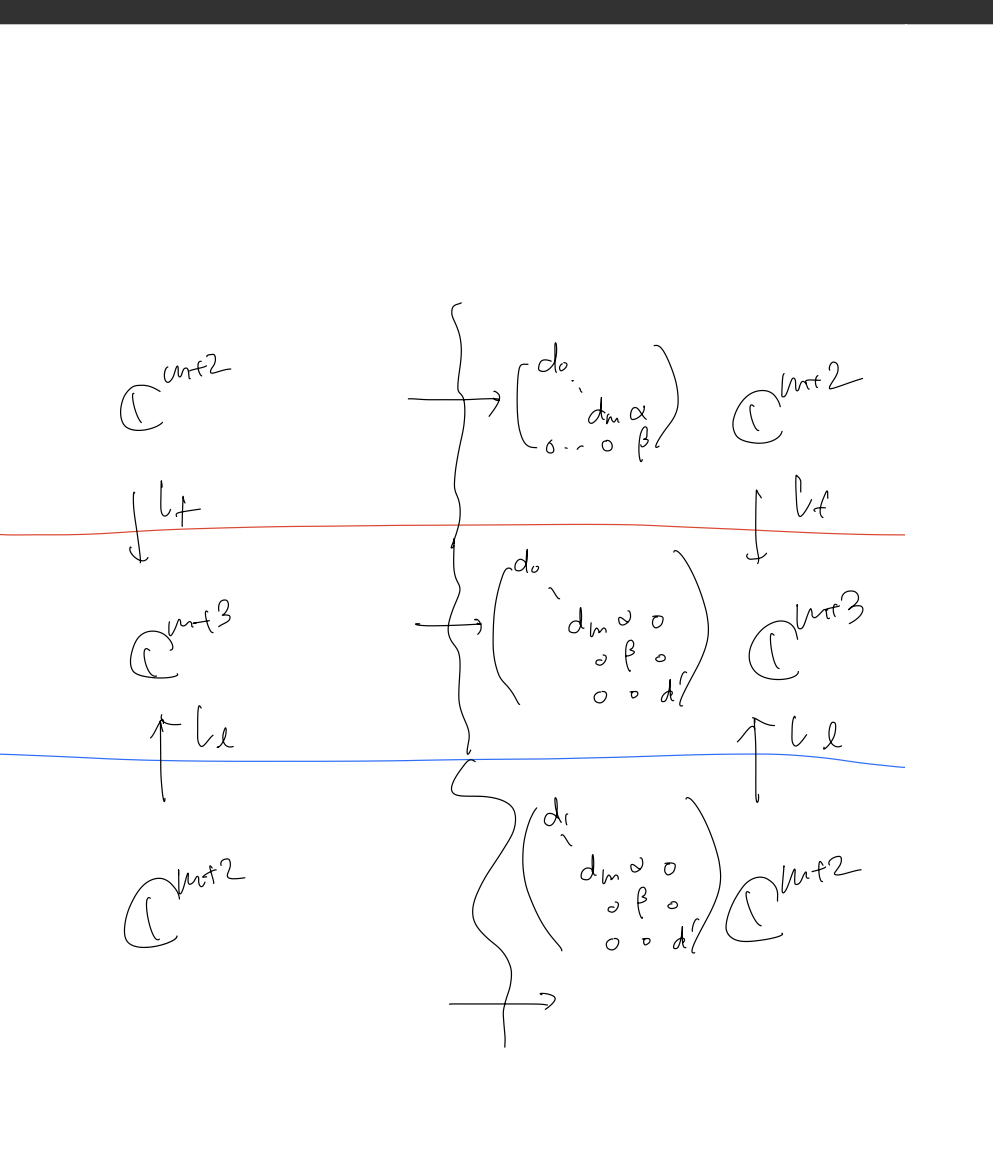 ℂ^{m+2} → ( d₀ ⋱ d_m α ; 0 ... 0 β ) ℂ^{m+2}
↓ ι_f ↓ ι_f
ℂ^{m+3} → ( d₀ ⋱ d_m α 0 ; 0 β 0 ; 0 0 d' ) ℂ^{m+3}
↑ ι_ℓ ↑ ι_ℓ
ℂ^{m+2} → ( d₁ ⋱ d_m α 0 ; 0 β 0 ; 0 0 d' ) ℂ^{m+2}